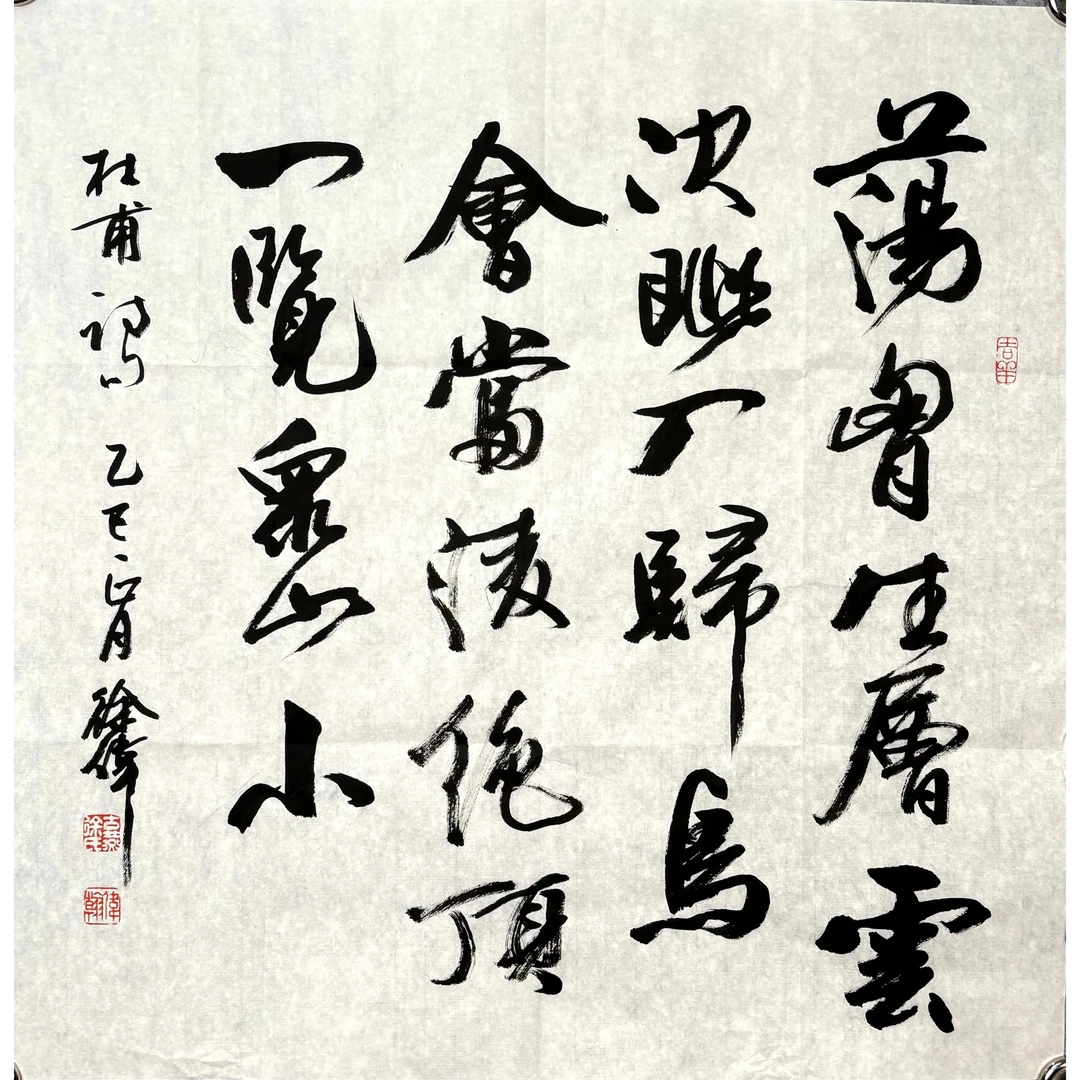 蕩胷生層雲
决眦入歸鳥
會當凌絶頂
一覽衆山小
杜甫詩 乙巳正月 徐偉